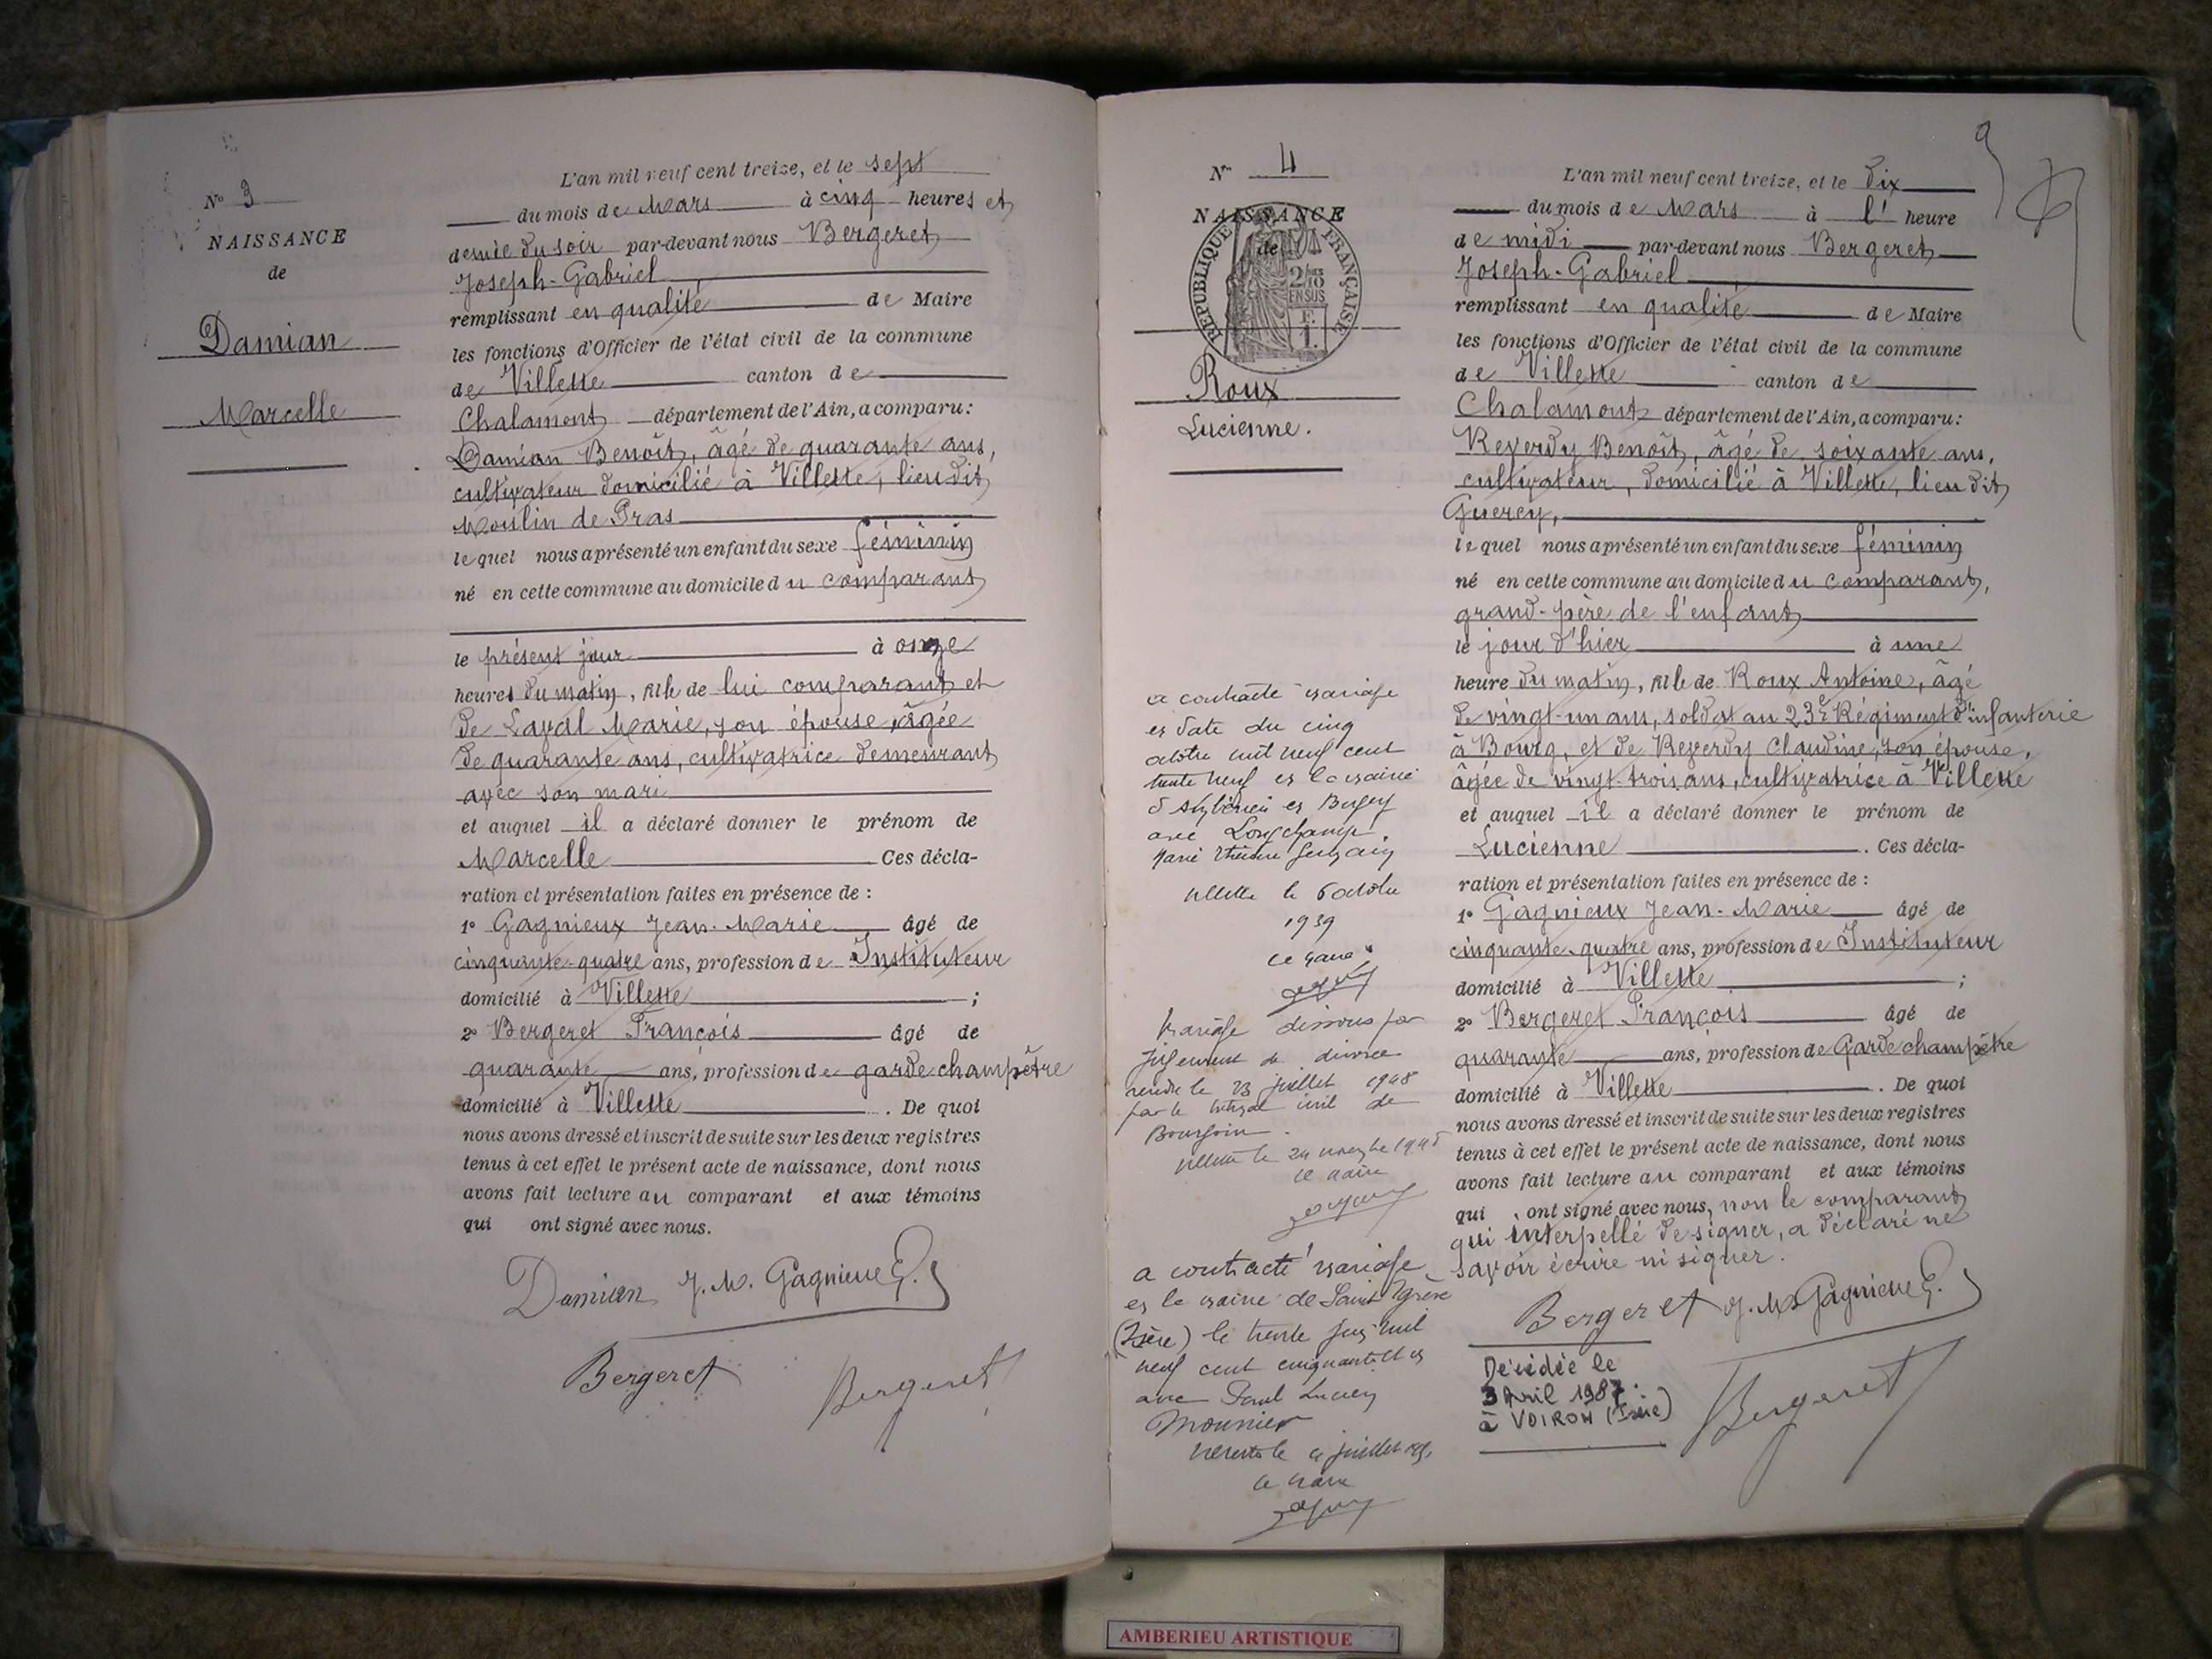 N° 3
NAISSANCE
de
Damian
Marcelle
L'an mil neuf cent treize, et le sept
du mois de Mars à cinq heures et
demie du soir par-devant nous Bergeret
Joseph-Gabriel
remplissant en qualité de Maire
les fonctions d'Officier de l'état civil de la commune
de Villette canton de
Chalamont département de l'Ain, a comparu:
Damian Benoît, âgé de quarante ans,
cultivateur domicilié à Villette, lieu dit
Moulin de Gras
lequel nous a présenté un enfant du sexe féminin
né en cette commune au domicile du comparant
le présent jour à onze
heures du matin, fille de lui comparant et
de Laval Marie, son épouse, âgée
de quarante ans, cultivatrice demeurant
avec son mari
et auquel il a déclaré donner le prénom de
Marcelle Ces décla-
ration et présentation faites en présence de :
1° Gagnieux Jean-Marie âgé de
cinquante-quatre ans, profession de Instituteur
domicilié à Villette ;
2° Bergeret François âgé de
quarante ans, profession de garde champêtre
domicilié à Villette . De quoi
nous avons dressé et inscrit de suite sur les deux registres
tenus à cet effet le présent acte de naissance, dont nous
avons fait lecture au comparant et aux témoins
qui ont signé avec nous.
Damian J. M. Gagnieux
Bergeret Bergeret
9
N° 4
NAISSANCE
de
RÉPUBLIQUE FRANÇAISE
2/10
EN SUS
E.
1.
Roux
Lucienne.
a contracté mariage
en date du cinq
octobre mil neuf cent
trente neuf en la mairie
avec Longchamp
Villette le 6 octobre
1939
le maire
Mariage dissous par
jugement de divorce
rendu le 23 juillet 1948
par le tribunal civil de
Bourgoin.
Villette le 24 novembre 1948
le maire
a contracté mariage
en la mairie de Saint Egrève
(Isère) le trente juin mil
neuf cent cinquante et un
avec Paul Lucien
Mounier
Villette le 4 juillet
le maire
L'an mil neuf cent treize, et le dix
du mois de Mars à l' heure
de midi par-devant nous Bergeret
Joseph-Gabriel
remplissant en qualité de Maire
les fonctions d'Officier de l'état civil de la commune
de Villette canton de
Chalamont département de l'Ain, a comparu:
Reverdy Benoît, âgé de soixante ans,
cultivateur, domicilié à Villette, lieu dit
Guercy,
lequel nous a présenté un enfant du sexe féminin
né en cette commune au domicile du comparant,
grand-père de l'enfant
le jour d'hier à une
heure du matin, fille de Roux Antoine, âgé
de vingt-un ans, soldat au 23e Régiment d'infanterie
à Bourg, et de Reverdy Claudine, son épouse,
âgée de vingt-trois ans, cultivatrice à Villette
et auquel il a déclaré donner le prénom de
Lucienne . Ces décla-
ration et présentation faites en présence de :
1° Gagnieux Jean-Marie âgé de
cinquante-quatre ans, profession de Instituteur
domicilié à Villette ;
2° Bergeret François âgé de
quarante ans, profession de Garde champêtre
domicilié à Villette . De quoi
nous avons dressé et inscrit de suite sur les deux registres
tenus à cet effet le présent acte de naissance, dont nous
avons fait lecture au comparant et aux témoins
qui ont signé avec nous, non le comparant
qui interpellé de signer, a déclaré ne
savoir écrire ni signer.
Bergeret J. M. Gagnieux
Bergeret
Décédée le
3 Avril 1987.
à VOIRON (Isère)
AMBERIEU ARTISTIQUE